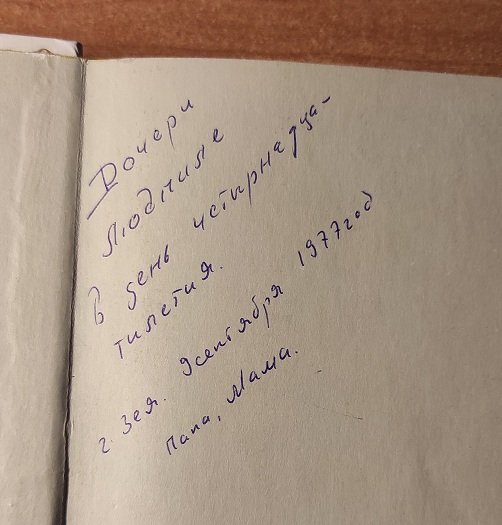 Дочери
Людмиле
В день четырнадца-
тилетия.
г. Зея. 9 сентября 1977 год
Папа, Мама.